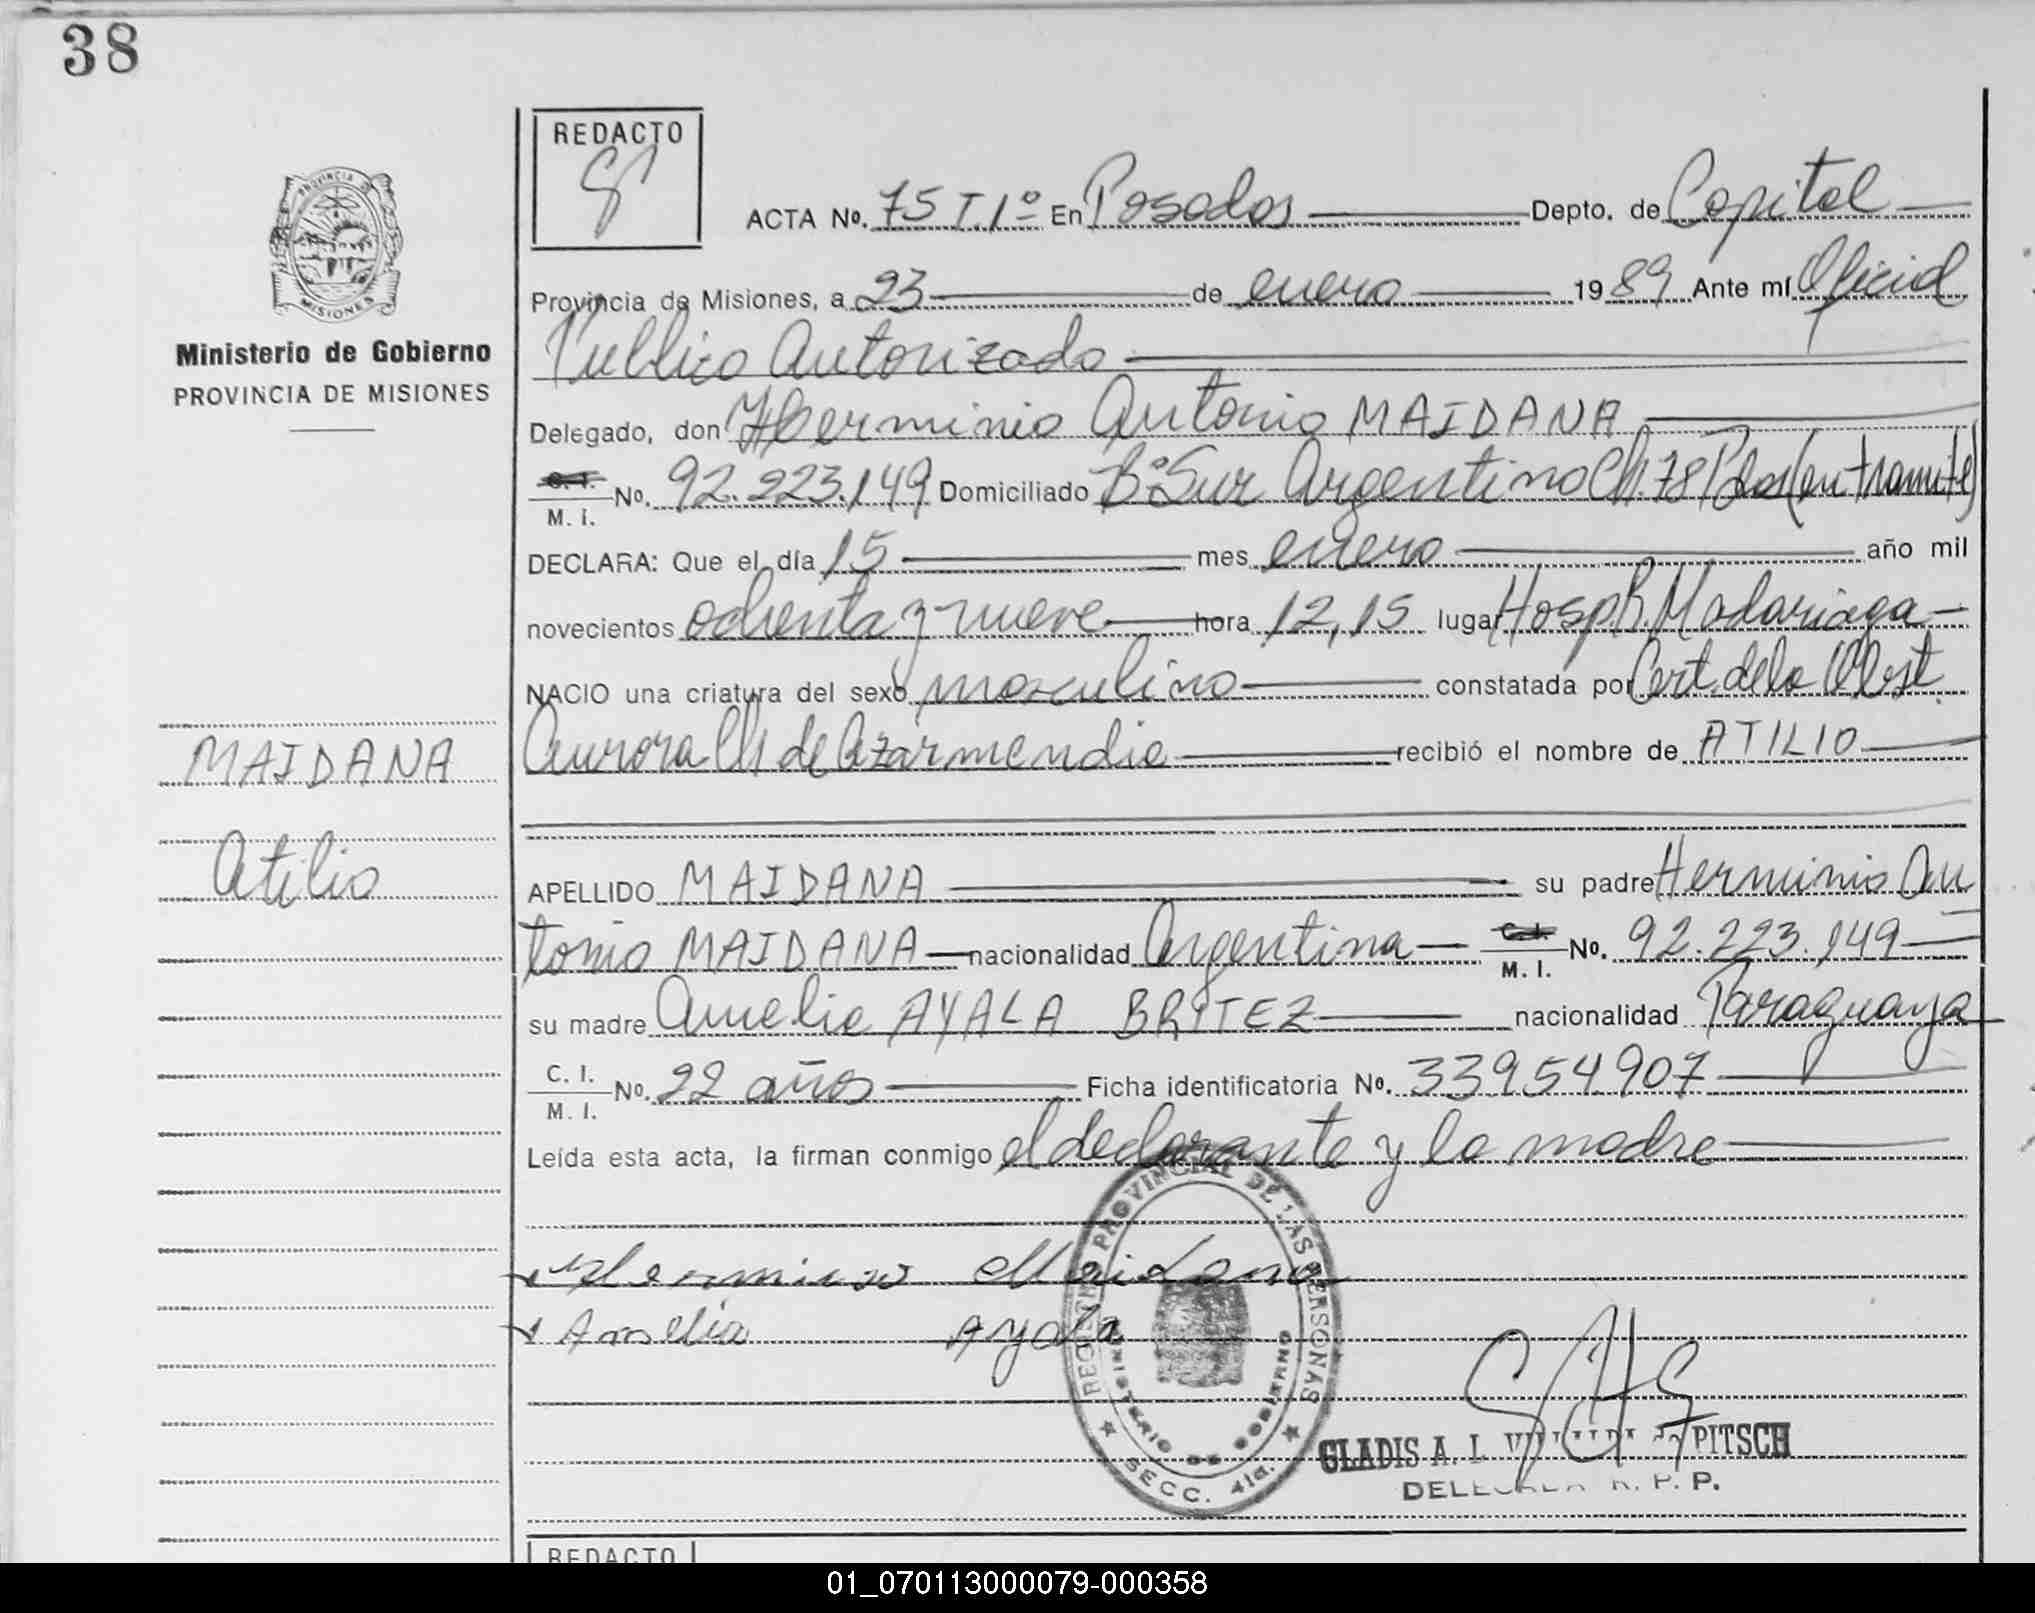 38
REDACTO
PROVINCIA DE
MISIONES
Ministerio de Gobierno
PROVINCIA DE MISIONES
ACTA No. 75 T.1º En Posadas Depto. de Capital
Provincia de Misiones, a 23 de enero 1989 Ante mí Oficial
Público Autorizado
Delegado, don Herminio Antonio MAIDANA
C. I. / M. I. No. 92.223.149 Domiciliado Bº Sur Argentino Ch. 78 Pdas (en tramite)
DECLARA: Que el día 15 mes enero año mil
novecientos ochenta y nueve hora 12,15 lugar Hosp. R. Madariaga
NACIO una criatura del sexo masculino constatada por Cert. de la Obst.
MAIDANA
Aurora Ch de Azarmendia recibió el nombre de ATILIO
Atilio
APELLIDO MAIDANA su padre Herminio An
tonio MAIDANA nacionalidad Argentina C. I. / M. I. No. 92.223.149
su madre Amelia AYALA BRITEZ nacionalidad Paraguaya
C. I. / M. I. No. 22 años Ficha identificatoria No. 33954907
Leída esta acta, la firman conmigo el declarante y la madre
Herminio Maidana
Amelia Ayala
REGISTRO PROVINCIAL DE LAS PERSONAS
MINISTERIO DE GOBIERNO
SECC. 4ta.
GLADIS A. I. PITSCH
DELEGADA R. P. P.
REDACTO
01_070113000079-000358